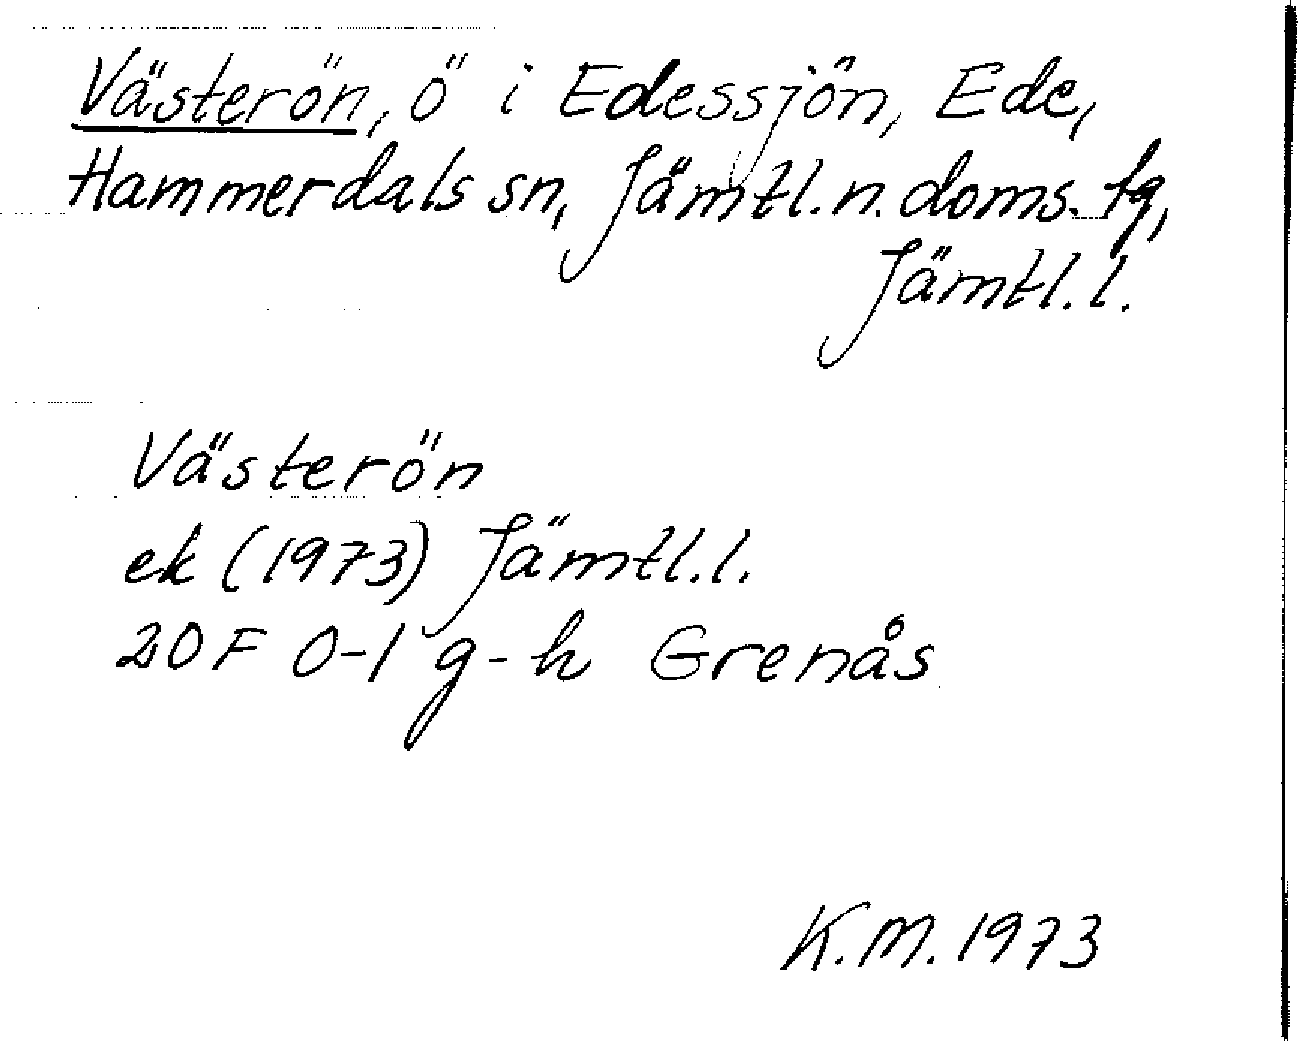 Västerön, ö i Edessjön, Ede,
Hammerdals sn, Jämtl.n.doms.tg,
Jämtl.l.
Västerön
ek (1973) Jämtl.l.
20F 0-1 g-h Grenås
K.M. 1973